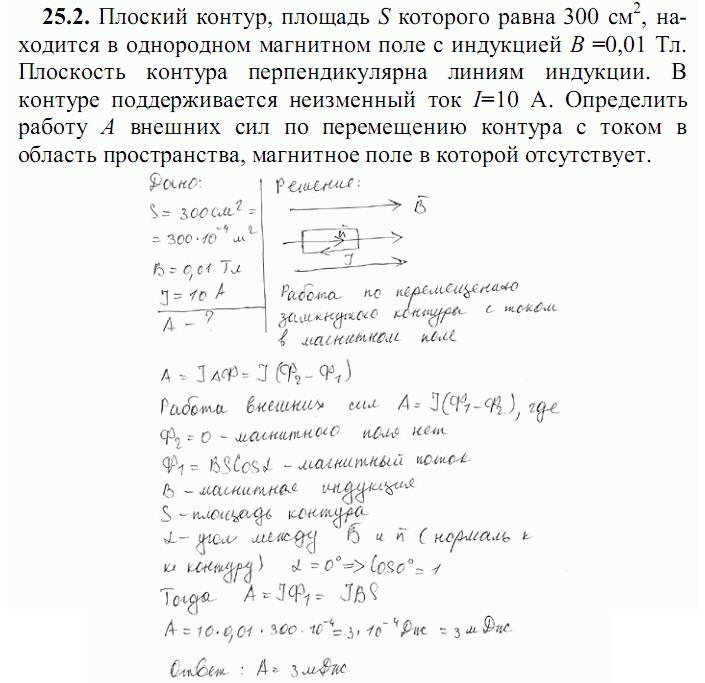 25.2. Плоский контур, площадь S которого равна 300 см², на-
ходится в однородном магнитном поле с индукцией B =0,01 Тл.
Плоскость контура перпендикулярна линиям индукции. В
контуре поддерживается неизменный ток I=10 А. Определить
работу A внешних сил по перемещению контура с током в
область пространства, магнитное поле в которой отсутствует.
Дано:
S = 300 см² =
= 300·10⁻⁴ м²
B = 0,01 Тл
J = 10 А
A - ?
Решение:
B̄
n̄
J
Работа по перемещению
замкнутого контура с током
в магнитном поле
A = JΔФ = J(Ф₂ - Ф₁)
Работа внешних сил A = J(Ф₁ - Ф₂), где
Ф₂ = 0 - магнитного поля нет
Ф₁ = BSCosα - магнитный поток
B - магнитная индукция
S - площадь контура
α - угол между B̄ и n̄ (нормаль к
к контуру) α = 0° => Cos0° = 1
Тогда A = JФ₁ = JBS
A = 10·0,01·300·10⁻⁴ = 3·10⁻⁴ Дж = 3 мДж
Ответ: A = 3 мДж